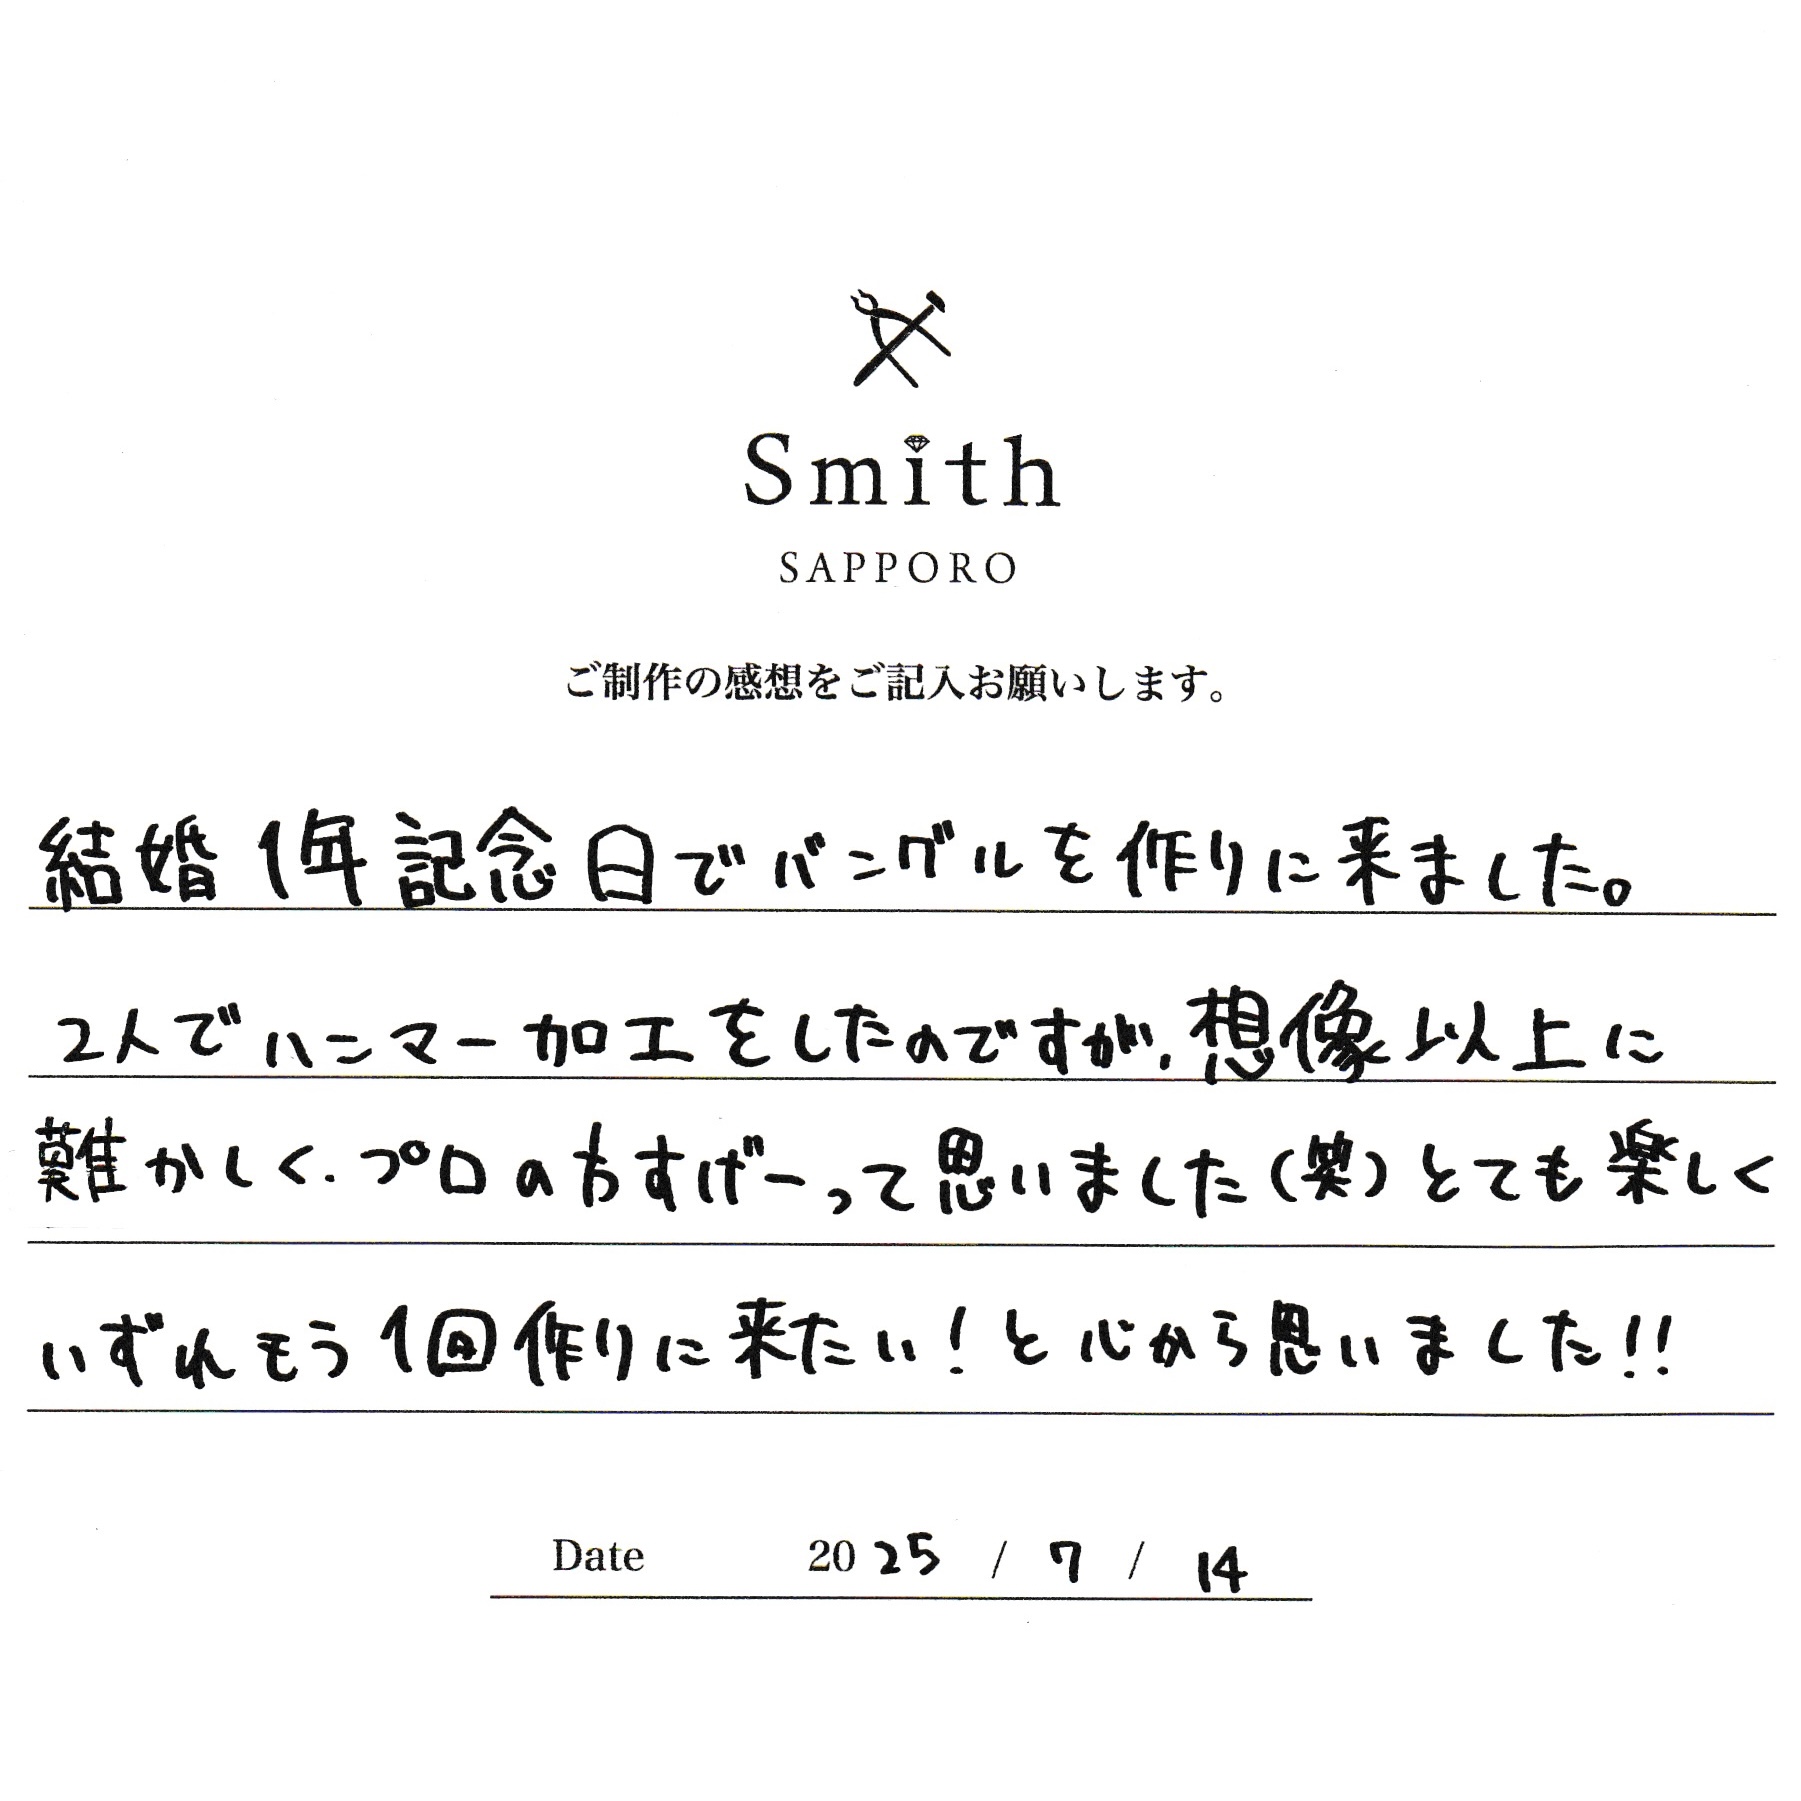 Smith
SAPPORO
ご制作の感想をご記入お願いします。
結婚1年記念日でバングルを作りに来ました。
2人でハンマー加工をしたのですが、想像以上に
難かしく、プロの方すげーって思いました(笑)とても楽しく
いずれもう1回作りに来たい!と心から思いました!!
Date 2025 / 7 / 14